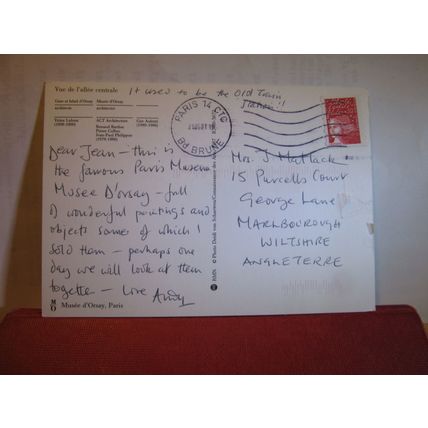 Vue de l'allée centrale
It used to be the Old Train
Station!!
Gare et hôtel d'Orsay
architecte
Musée d'Orsay
architectes
Victor Laloux
(1850-1900)
ACT Architecture
Renaud Bardon
Pierre Colboc
Jean-Paul Philippon
(1979-1986)
Gae Aulenti
(1980-1986)
PARIS 14 CTC
Bd BRUNE
Dear Jean – this is
the famous Paris Museum
Musee D'orsay – full
of wonderful paintings and
objects some of which I
sold them – perhaps one
day we will look at them
together – love Andy
M
O
Musée d'Orsay, Paris
RMN
Mrs. J Matlack
15 Purcells Court
George Lane
MARLBOUROUGH
WILTSHIRE
ANGLETERRE